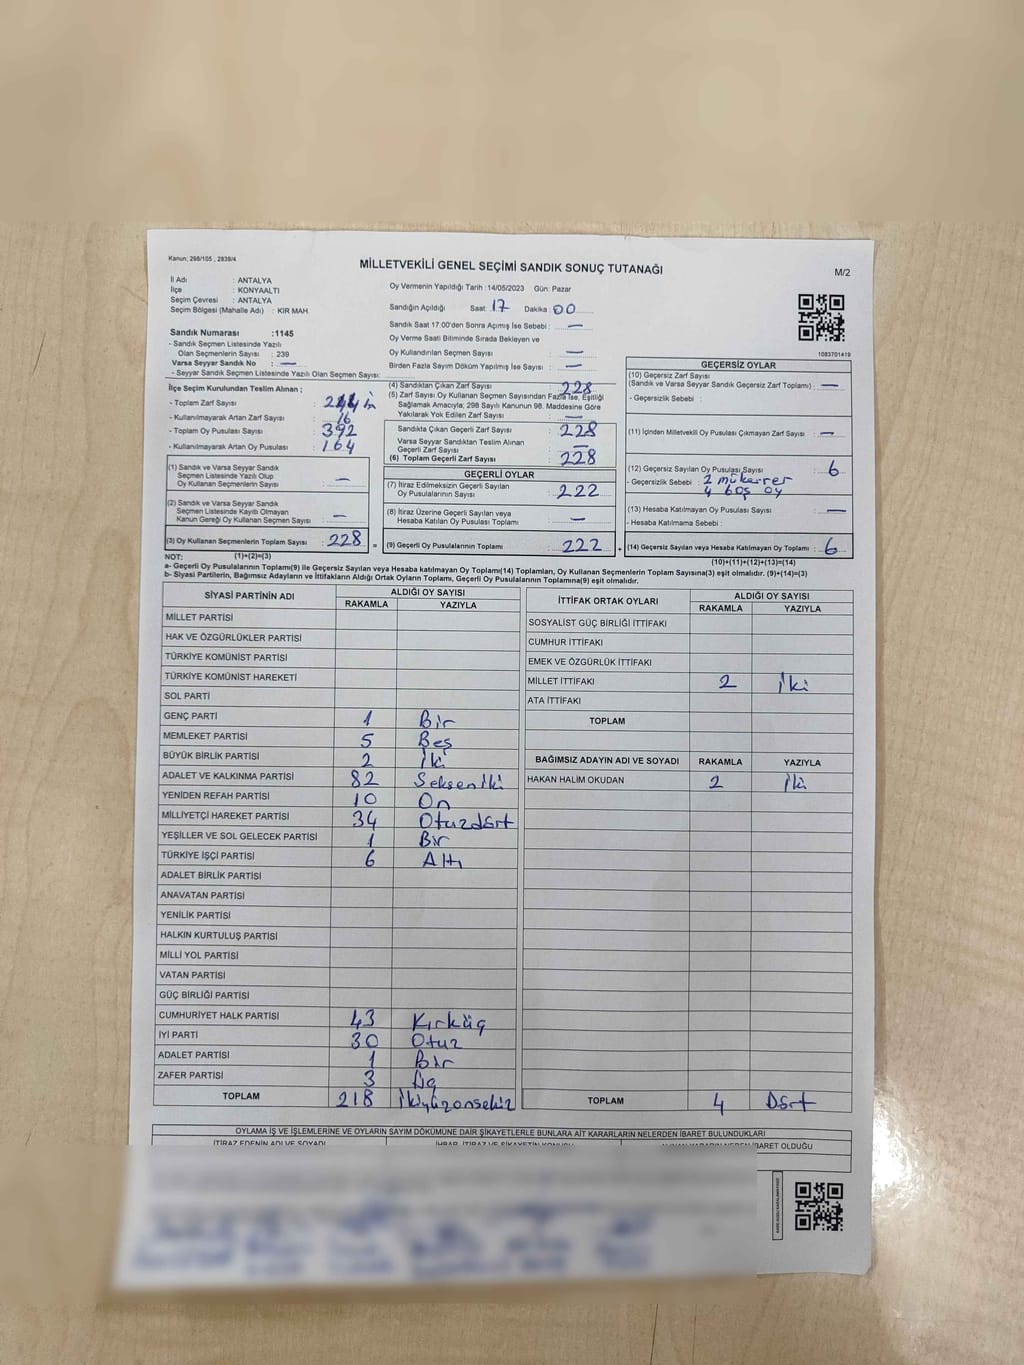 Kanun: 298/105 , 2839/4
MİLLETVEKİLİ GENEL SEÇİMİ SANDIK SONUÇ TUTANAĞI
M/2
İl Adı : ANTALYA
İlçe : KONYAALTI
Seçim Çevresi : ANTALYA
Seçim Bölgesi (Mahalle Adı) : KIR MAH
Sandık Numarası :1145
- Sandık Seçmen Listesinde Yazılı
Olan Seçmenlerin Sayısı : 239
Varsa Seyyar Sandık No : —
- Seyyar Sandık Seçmen Listesinde Yazılı Olan Seçmen Sayısı:
Oy Vermenin Yapıldığı Tarih : 14/05/2023 Gün: Pazar
Sandığın Açıldığı Saat: 17 Dakika: 00
Sandık Saat 17.00'den Sonra Açımış İse Sebebi : —
Oy Verme Saati Bitiminde Sırada Bekleyen ve
Oy Kullandırılan Seçmen Sayısı : —
Birden Fazla Sayım Döküm Yapılmış İse Sayısı : —
1083701419
İlçe Seçim Kurulundan Teslim Alınan ;
- Toplam Zarf Sayısı :
- Kullanılmayarak Artan Zarf Sayısı : 16
- Toplam Oy Pusulası Sayısı : 392
- Kullanılmayarak Artan Oy Pusulası : 164
(1) Sandık ve Varsa Seyyar Sandık
Seçmen Listesinde Yazılı Olup
Oy Kullanan Seçmenlerin Sayısı : —
(2) Sandık ve Varsa Seyyar Sandık
Seçmen Listesinde Kayıtlı Olmayan
Kanun Gereği Oy Kullanan Seçmen Sayısı : —
(3) Oy Kullanan Seçmenlerin Toplam Sayısı : 228 =
(4) Sandıktan Çıkan Zarf Sayısı : 228
(5) Zarf Sayısı Oy Kullanan Seçmen Sayısından Fazla İse, Eşitliği
Sağlamak Amacıyla; 298 Sayılı Kanunun 98. Maddesine Göre
Yakılarak Yok Edilen Zarf Sayısı : —
Sandıkta Çıkan Geçerli Zarf Sayısı : 228
Varsa Seyyar Sandıktan Teslim Alınan
Geçerli Zarf Sayısı : —
(6) Toplam Geçerli Zarf Sayısı : 228
GEÇERLİ OYLAR
(7) İtiraz Edilmeksizin Geçerli Sayılan
Oy Pusulalarının Sayısı : 222
(8) İtiraz Üzerine Geçerli Sayılan veya
Hesaba Katılan Oy Pusulası Toplamı : —
(9) Geçerli Oy Pusulalarının Toplamı : 222 +
GEÇERSİZ OYLAR
(10) Geçersiz Zarf Sayısı
(Sandık ve Varsa Seyyar Sandık Geçersiz Zarf Toplamı) : —
- Geçersizlik Sebebi :
(11) İçinden Milletvekili Oy Pusulası Çıkmayan Zarf Sayısı : —
(12) Geçersiz Sayılan Oy Pusulası Sayısı : 6
- Geçersizlik Sebebi : 2 mükerrer
4 boş oy
(13) Hesaba Katılmayan Oy Pusulası Sayısı : —
- Hesaba Katılmama Sebebi :
(14) Geçersiz Sayılan veya Hesaba Katılmayan Oy Toplamı : 6
NOT: (1)+(2)=(3) (10)+(11)+(12)+(13)=(14)
a- Geçerli Oy Pusulalarının Toplamı(9) ile Geçersiz Sayılan veya Hesaba Katılmayan Oy Toplamı(14) Toplamları, Oy Kullanan Seçmenlerin Toplam Sayısına(3) eşit olmalıdır. (9)+(14)=(3)
b- Siyasi Partilerin, Bağımsız Adayların ve İttifakların Aldığı Ortak Oyların Toplamı, Geçerli Oy Pusulalarının Toplamına(9) eşit olmalıdır.
SİYASİ PARTİNİN ADI ALDIĞI OY SAYISI
RAKAMLA YAZIYLA
MİLLET PARTİSİ
HAK VE ÖZGÜRLÜKLER PARTİSİ
TÜRKİYE KOMÜNİST PARTİSİ
TÜRKİYE KOMÜNİST HAREKETİ
SOL PARTİ
GENÇ PARTİ 1 Bir
MEMLEKET PARTİSİ 5 Beş
BÜYÜK BİRLİK PARTİSİ 2 İki
ADALET VE KALKINMA PARTİSİ 82 Seksen iki
YENİDEN REFAH PARTİSİ 10 On
MİLLİYETÇİ HAREKET PARTİSİ 34 Otuzdört
YEŞİLLER VE SOL GELECEK PARTİSİ 1 Bir
TÜRKİYE İŞÇİ PARTİSİ 6 Altı
ADALET BİRLİK PARTİSİ
ANAVATAN PARTİSİ
YENİLİK PARTİSİ
HALKIN KURTULUŞ PARTİSİ
MİLLİ YOL PARTİSİ
VATAN PARTİSİ
GÜÇ BİRLİĞİ PARTİSİ
CUMHURİYET HALK PARTİSİ 43 Kırküç
İYİ PARTİ 30 Otuz
ADALET PARTİSİ 1 Bir
ZAFER PARTİSİ 3 Üç
TOPLAM 218 İkiyüzonsekiz
İTTİFAK ORTAK OYLARI ALDIĞI OY SAYISI
RAKAMLA YAZIYLA
SOSYALİST GÜÇ BİRLİĞİ İTTİFAKI
CUMHUR İTTİFAKI
EMEK VE ÖZGÜRLÜK İTTİFAKI
MİLLET İTTİFAKI 2 İki
ATA İTTİFAKI
TOPLAM
BAĞIMSIZ ADAYIN ADI VE SOYADI RAKAMLA YAZIYLA
HAKAN HALİM OKUDAN 2 İki
TOPLAM 4 Dört
OYLAMA İŞ VE İŞLEMLERİNE VE OYLARIN SAYIM DÖKÜMÜNE DAİR ŞİKAYETLERLE BUNLARA AİT KARARLARIN NELERDEN İBARET BULUNDUKLARI
İTİRAZ EDENİN ADI VE SOYADI İHBAR, İTİRAZ VE ŞİKAYETİN KONUSU ALINAN KARARIN NEDEN İBARET OLDUĞU